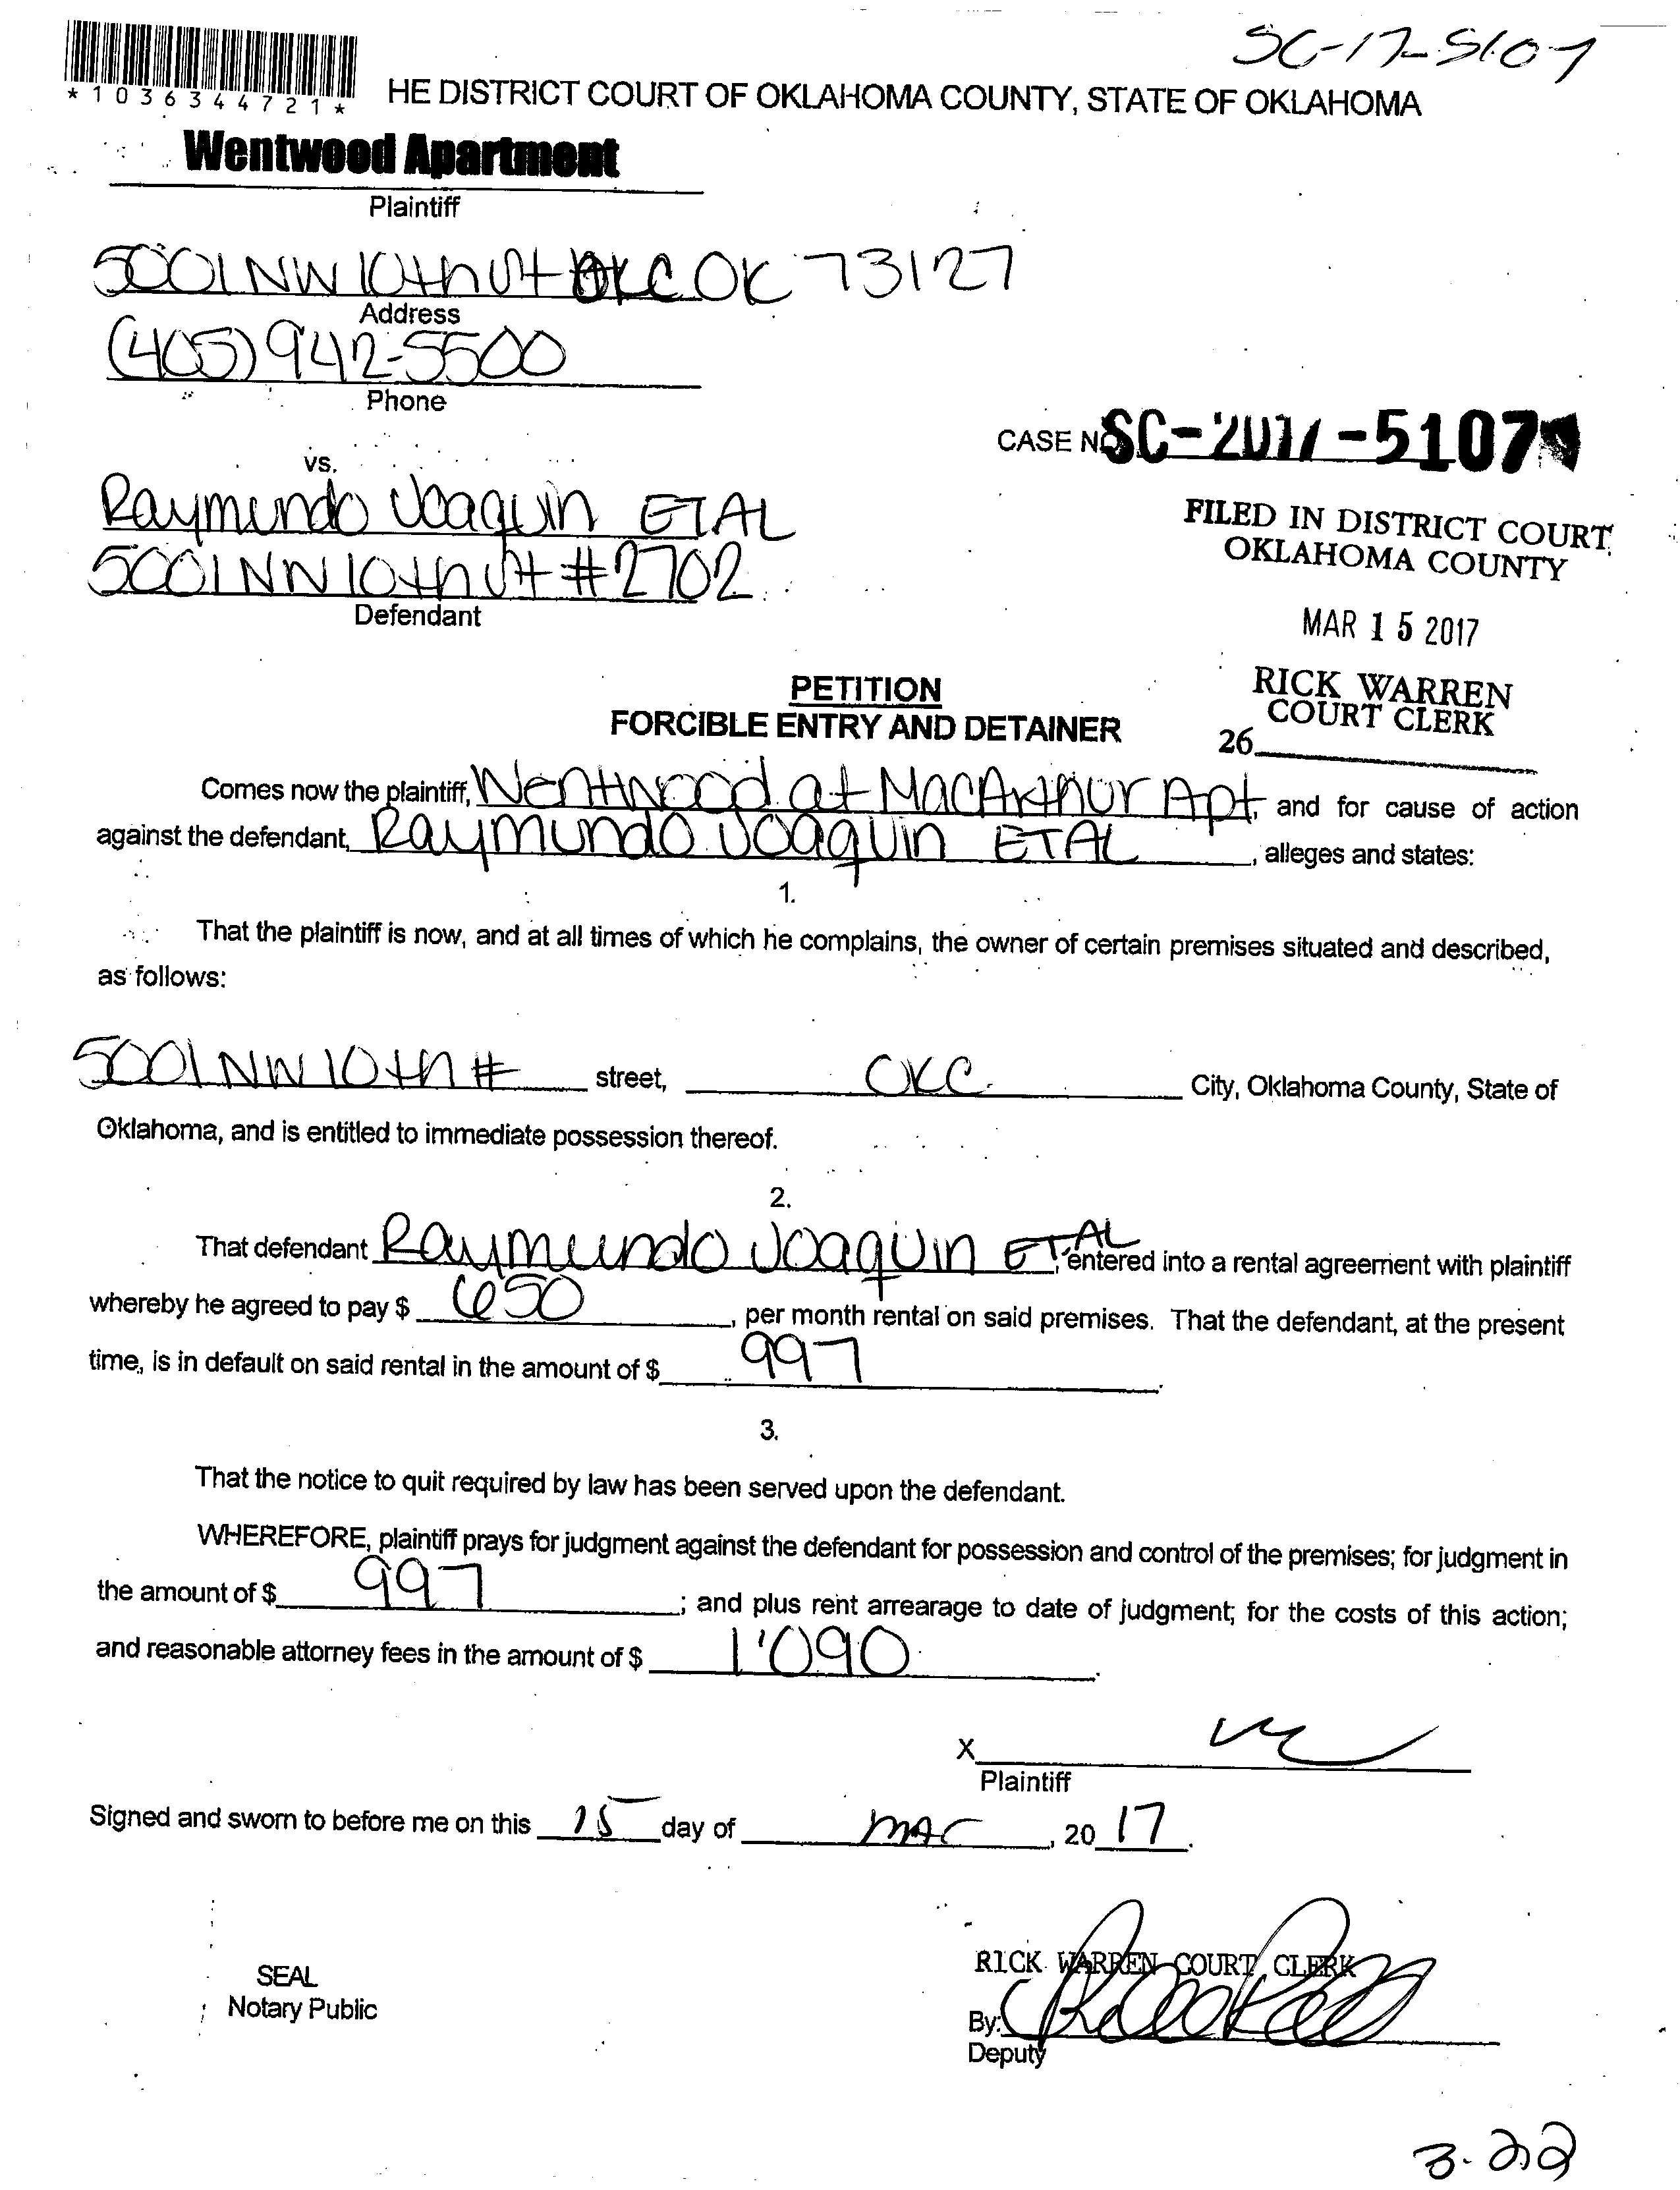 SC-17-5107
*1036344721*
HE DISTRICT COURT OF OKLAHOMA COUNTY, STATE OF OKLAHOMA
Wentwood Apartment
Plaintiff
5001 NW 10th St OKC OK 73127
Address
(405) 942-5500
Phone
CASE NO SC-2017-5107
vs.
Raymundo Joaquin ETAL
5001 NW 10th St #2702
Defendant
FILED IN DISTRICT COURT
OKLAHOMA COUNTY
MAR 15 2017
RICK WARREN
COURT CLERK
26
PETITION
FORCIBLE ENTRY AND DETAINER
Comes now the plaintiff, Wentwood at MacArthur Apt, and for cause of action
against the defendant, Raymundo Joaquin ETAL, alleges and states:
1.
That the plaintiff is now, and at all times of which he complains, the owner of certain premises situated and described,
as follows:
5001 NW 10th # street, OKC City, Oklahoma County, State of
Oklahoma, and is entitled to immediate possession thereof.
2.
That defendant Raymundo Joaquin ETAL, entered into a rental agreement with plaintiff
whereby he agreed to pay $ 650, per month rental on said premises. That the defendant, at the present
time, is in default on said rental in the amount of $ 997.
3.
That the notice to quit required by law has been served upon the defendant.
WHEREFORE, plaintiff prays for judgment against the defendant for possession and control of the premises; for judgment in
the amount of $ 997; and plus rent arrearage to date of judgment; for the costs of this action;
and reasonable attorney fees in the amount of $ 1'090.
X
Plaintiff
Signed and sworn to before me on this 15 day of MAR, 20 17.
SEAL
Notary Public
RICK WARREN COURT CLERK
By:
Deputy
3-22